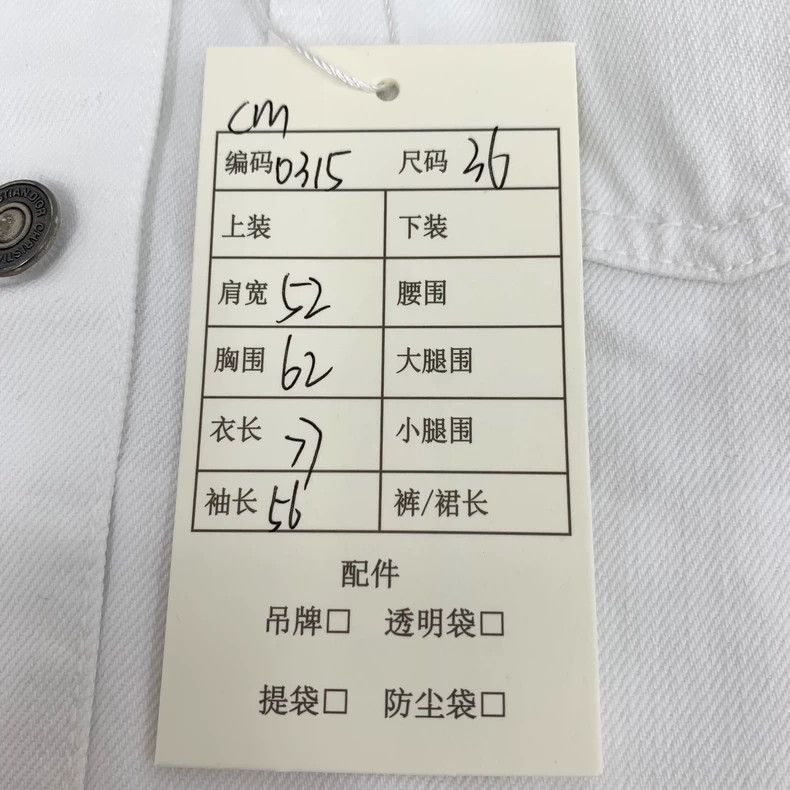 cm
编码 0315 尺码 36
上装 下装
肩宽 52 腰围
胸围 62 大腿围
衣长 77 小腿围
袖长 56 裤/裙长
配件
吊牌□ 透明袋□
提袋□ 防尘袋□
CHRISTIAN DIOR